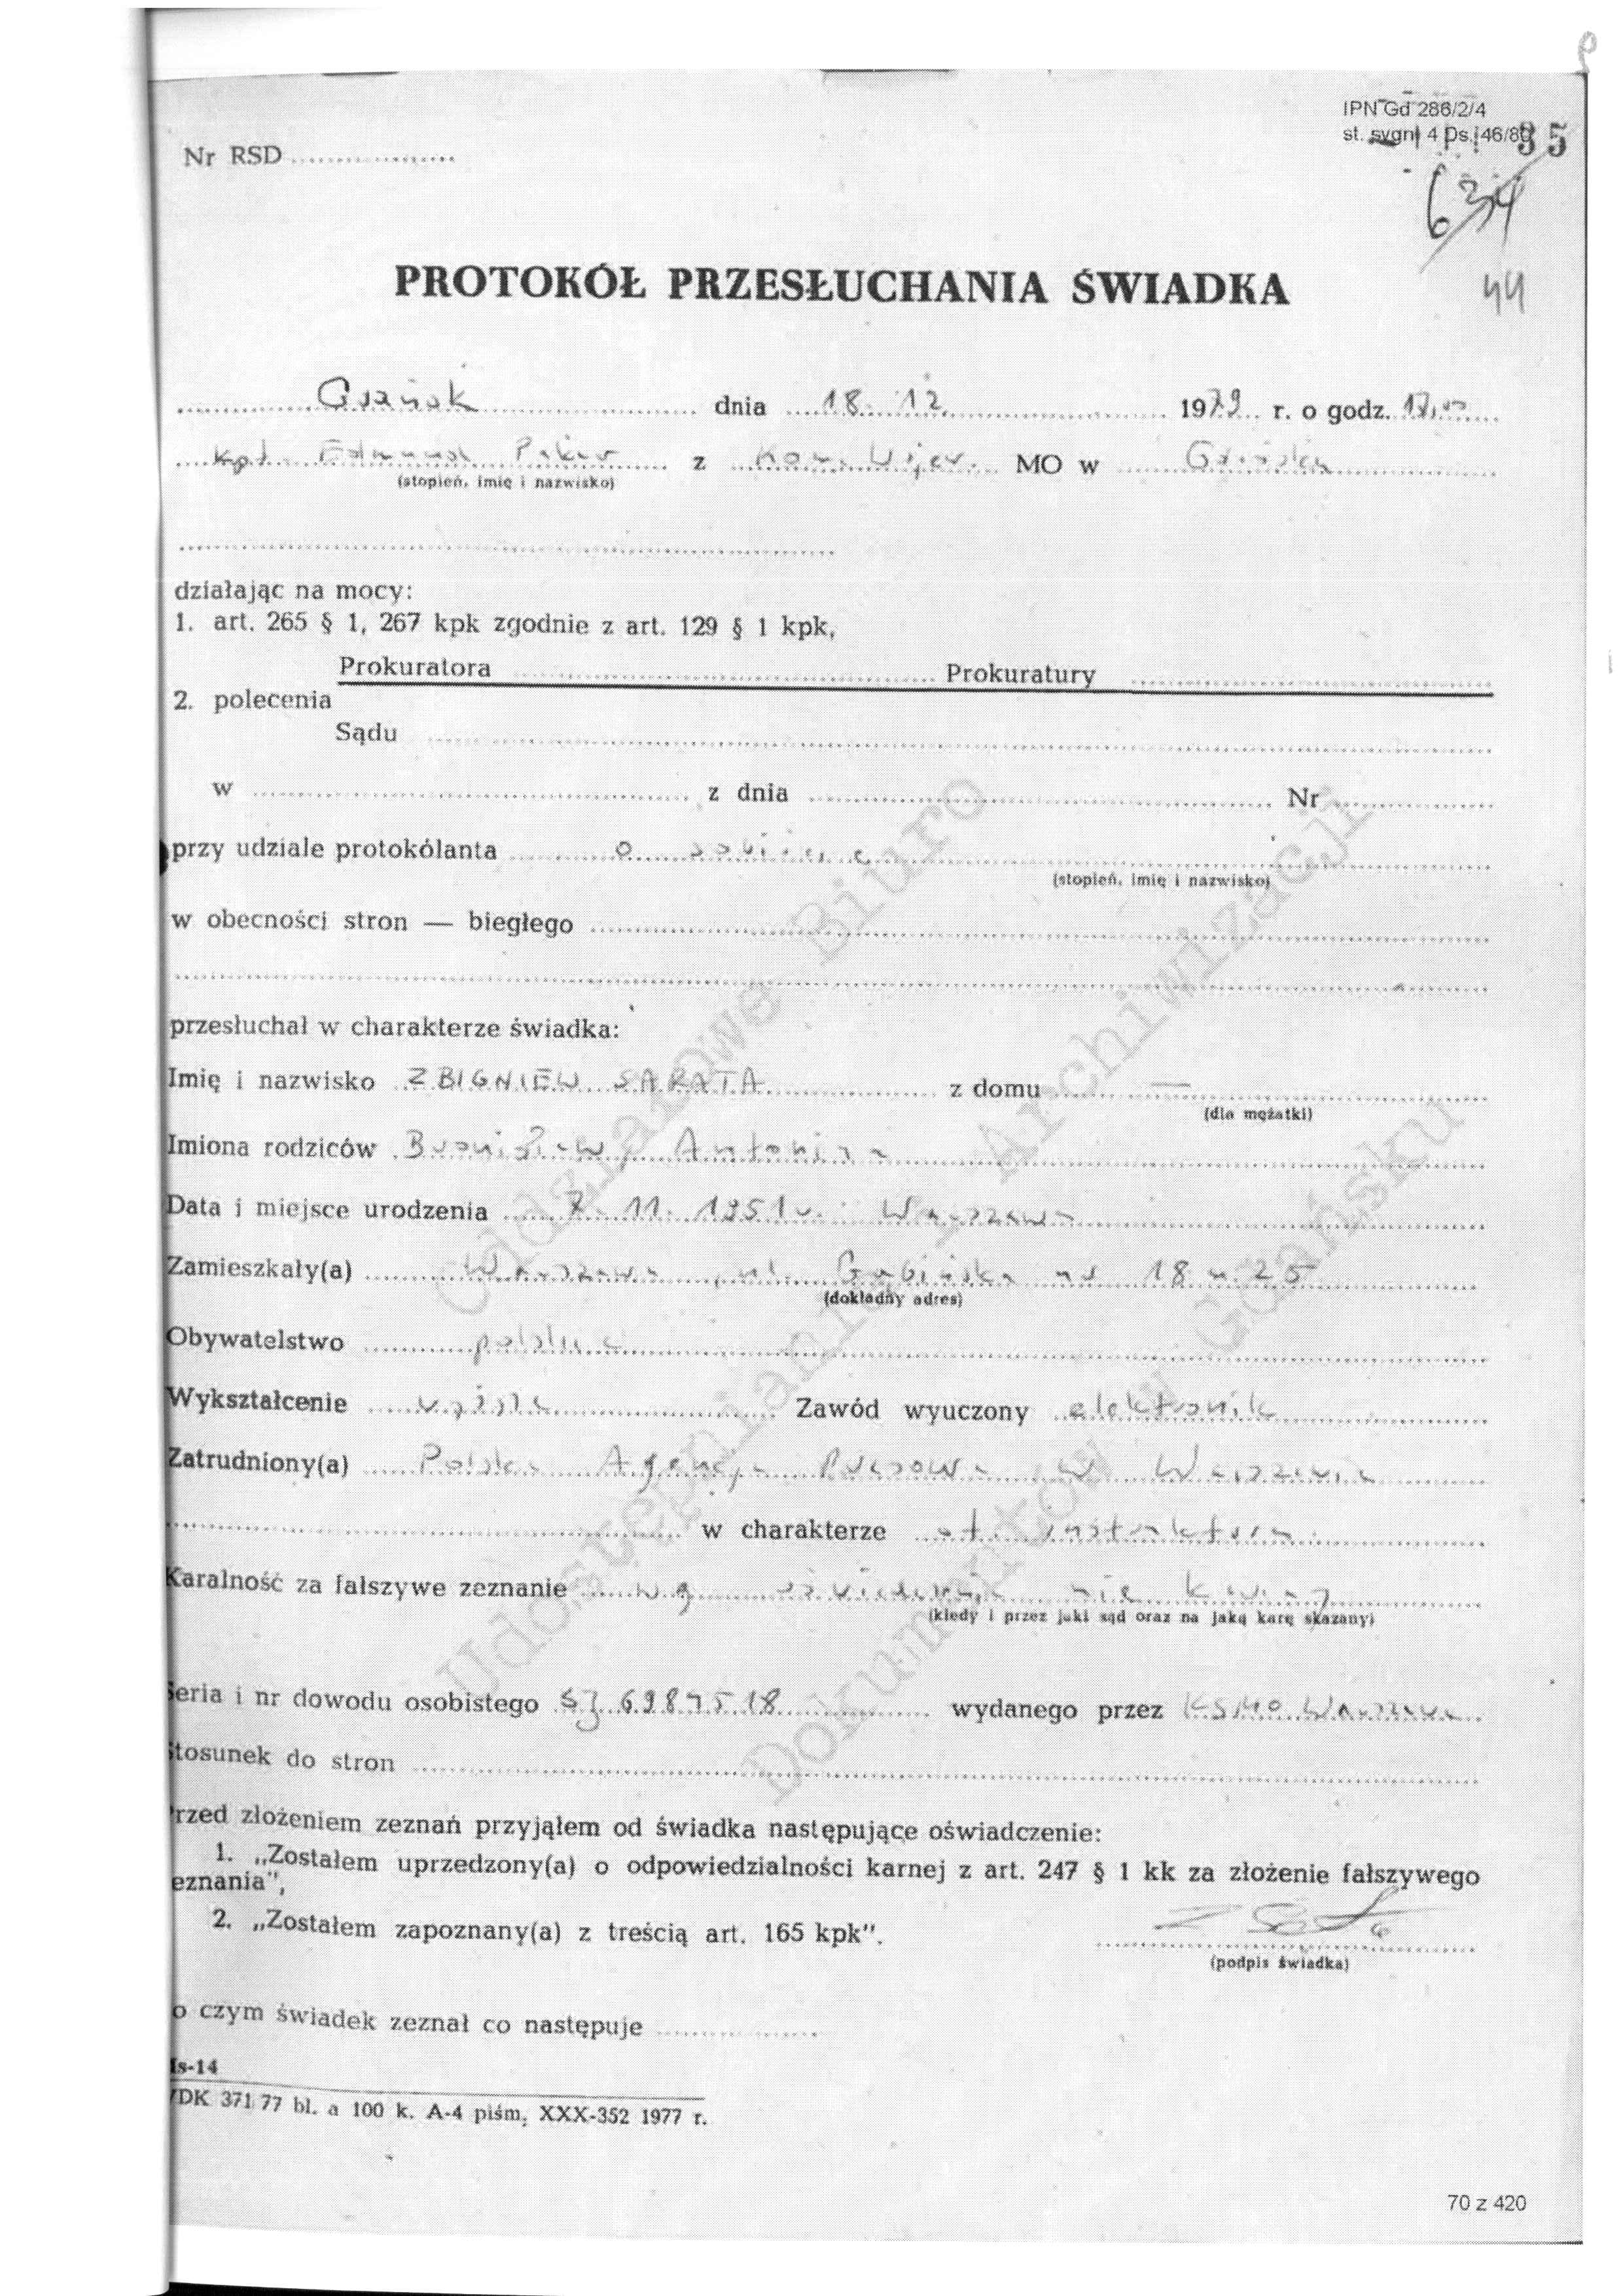 IPN Gd 286/2/4
st. sygn. 4 Ds. 46/80
35
Nr RSD ..................
634
44
PROTOKÓŁ PRZESŁUCHANIA ŚWIADKA
Gdańsk dnia 18. 12. 1979 r. o godz.
kpt. Edmund z Kom. Wojew. MO w Gdańsku
(stopień, imię i nazwisko)
działając na mocy:
1. art. 265 § 1, 267 kpk zgodnie z art. 129 § 1 kpk,
Prokuratora .......... Prokuratury ..........
2. polecenia
Sądu ..........
w .......... z dnia .......... Nr ..........
przy udziale protokólanta osobiście
(stopień, imię i nazwisko)
w obecności stron — biegłego ..........
przesłuchał w charakterze świadka:
Imię i nazwisko ZBIGNIEW SARATA z domu —
(dla mężatki)
Imiona rodziców Bronisław, Antonina
Data i miejsce urodzenia 7. 11. 1951 r. Warszawa
Zamieszkały(a) Warszawa, ul. Gąbińska nr 18 m. 25
(dokładny adres)
Obywatelstwo polskie
Wykształcenie wyższe Zawód wyuczony elektronik
Zatrudniony(a) Polska Agencja Prasowa w Warszawie
w charakterze st. instruktora
Karalność za fałszywe zeznanie wg oświadczenia nie karany
(kiedy i przez jaki sąd oraz na jaką karę skazany)
Seria i nr dowodu osobistego wydanego przez KSMO Warszawa
Stosunek do stron ..........
Przed złożeniem zeznań przyjąłem od świadka następujące oświadczenie:
1. „Zostałem uprzedzony(a) o odpowiedzialności karnej z art. 247 § 1 kk za złożenie fałszywego
eznania",
2. „Zostałem zapoznany(a) z treścią art. 165 kpk".
(podpis świadka)
o czym świadek zeznał co następuje ..........
Ms-14
DK 371/77 bl. a 100 k. A-4 piśm. XXX-352 1977 r.
70 z 420
Oddziałowe Biuro
Udostępniania i Archiwizacji
Dokumentów w Gdańsku